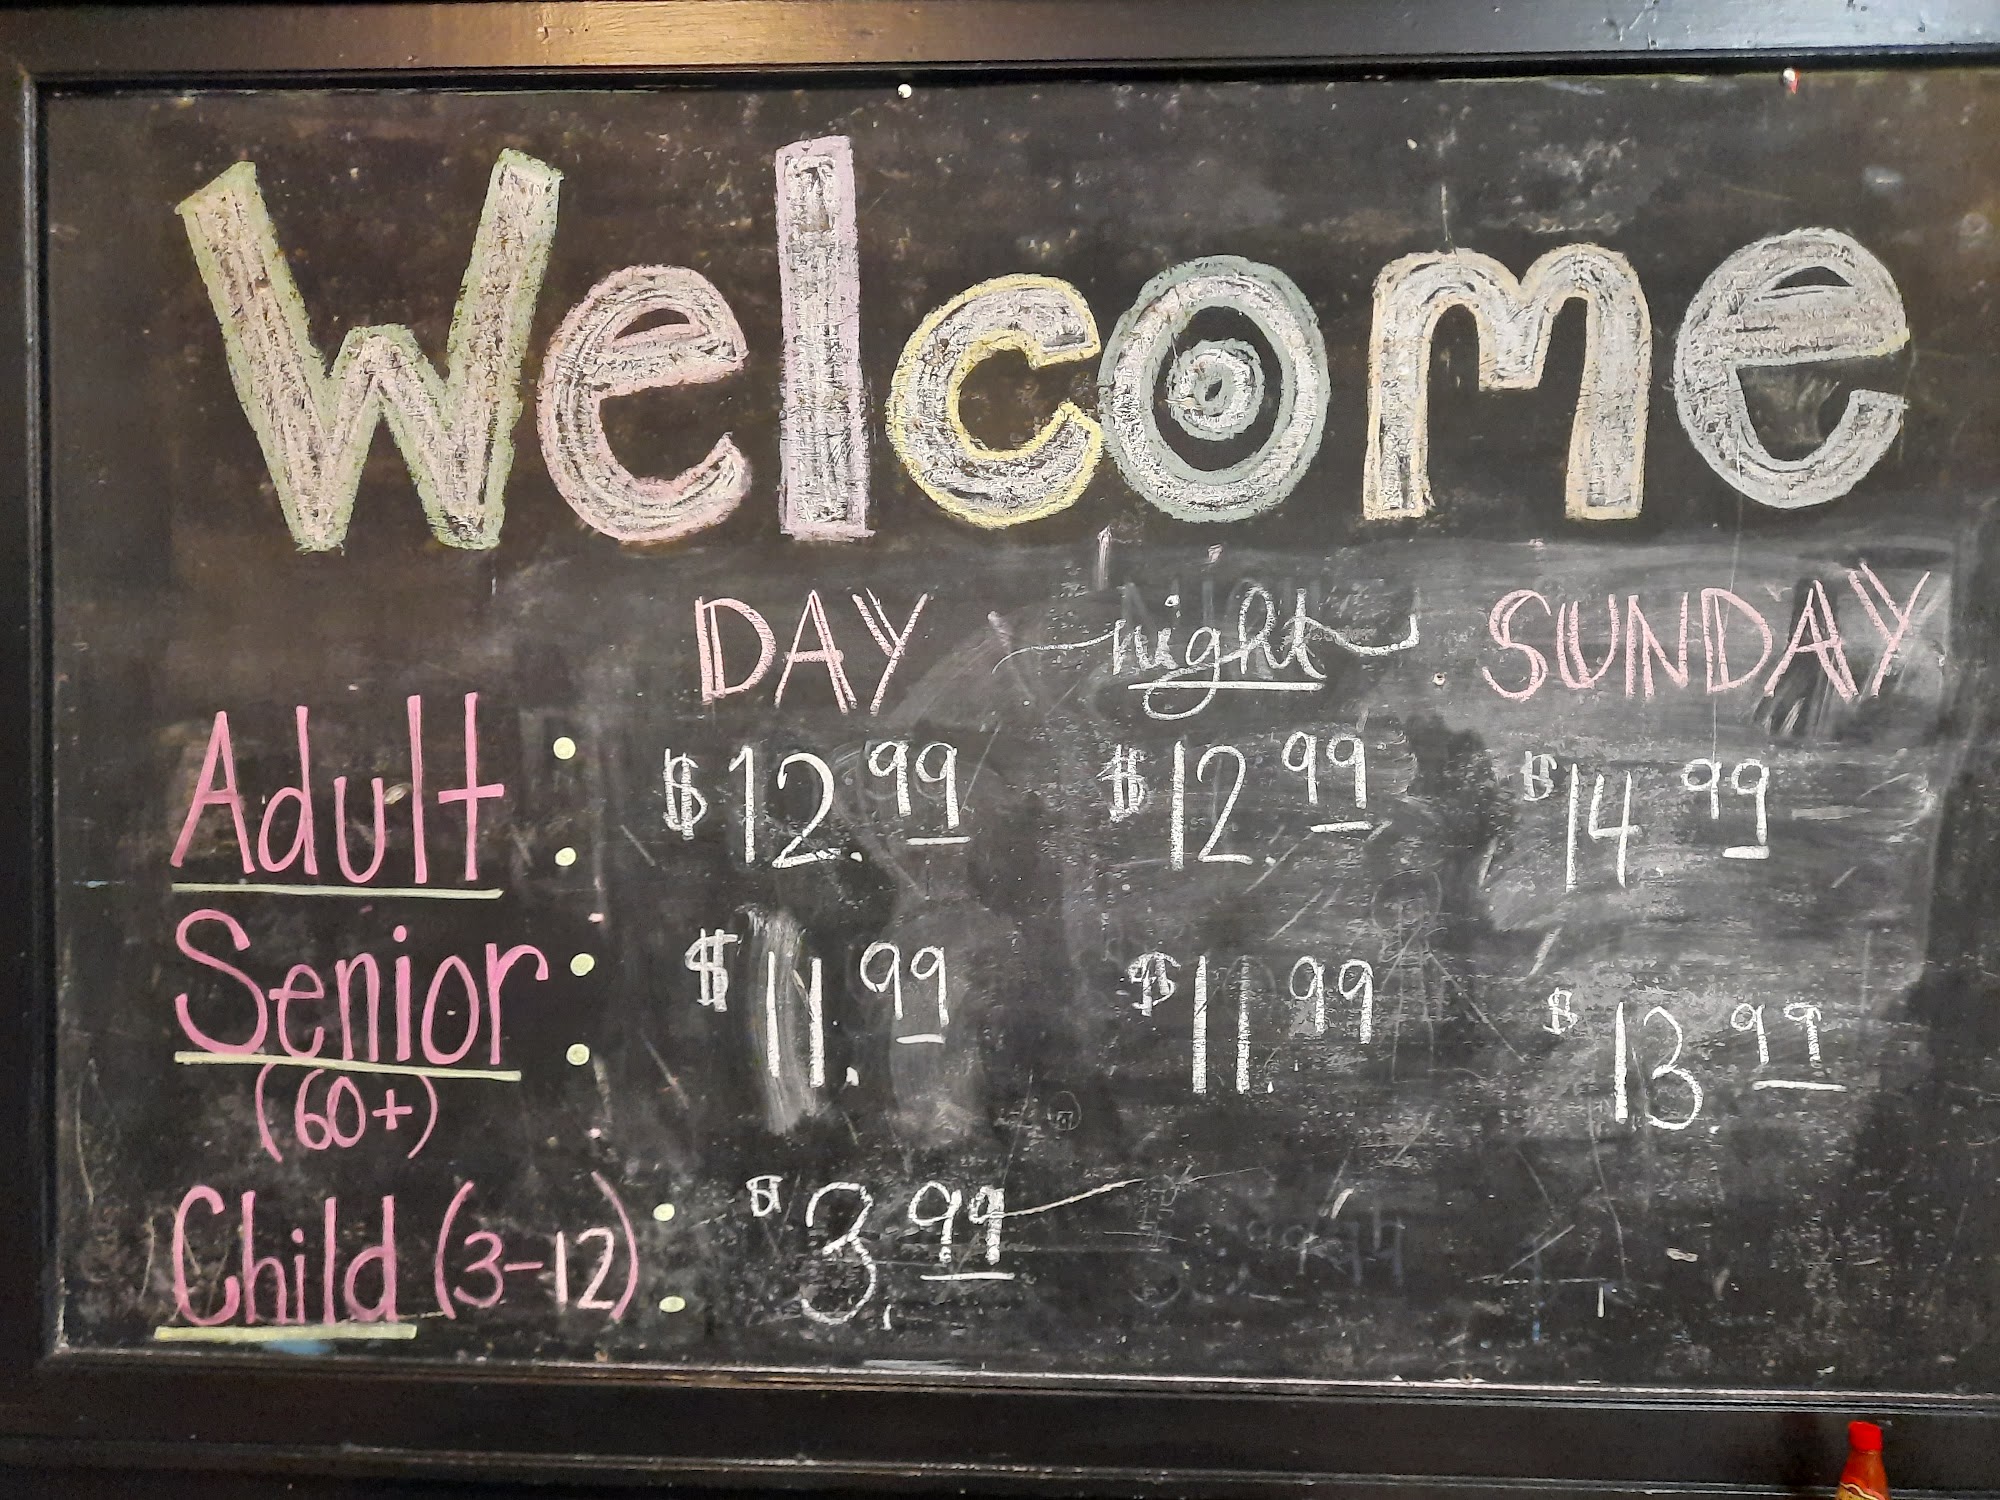 Welcome
DAY night SUNDAY
Adult: $12.99 $12.99 $14.99
Senior: $11.99 $11.99 $13.99
(60+)
Child (3-12): $3.99